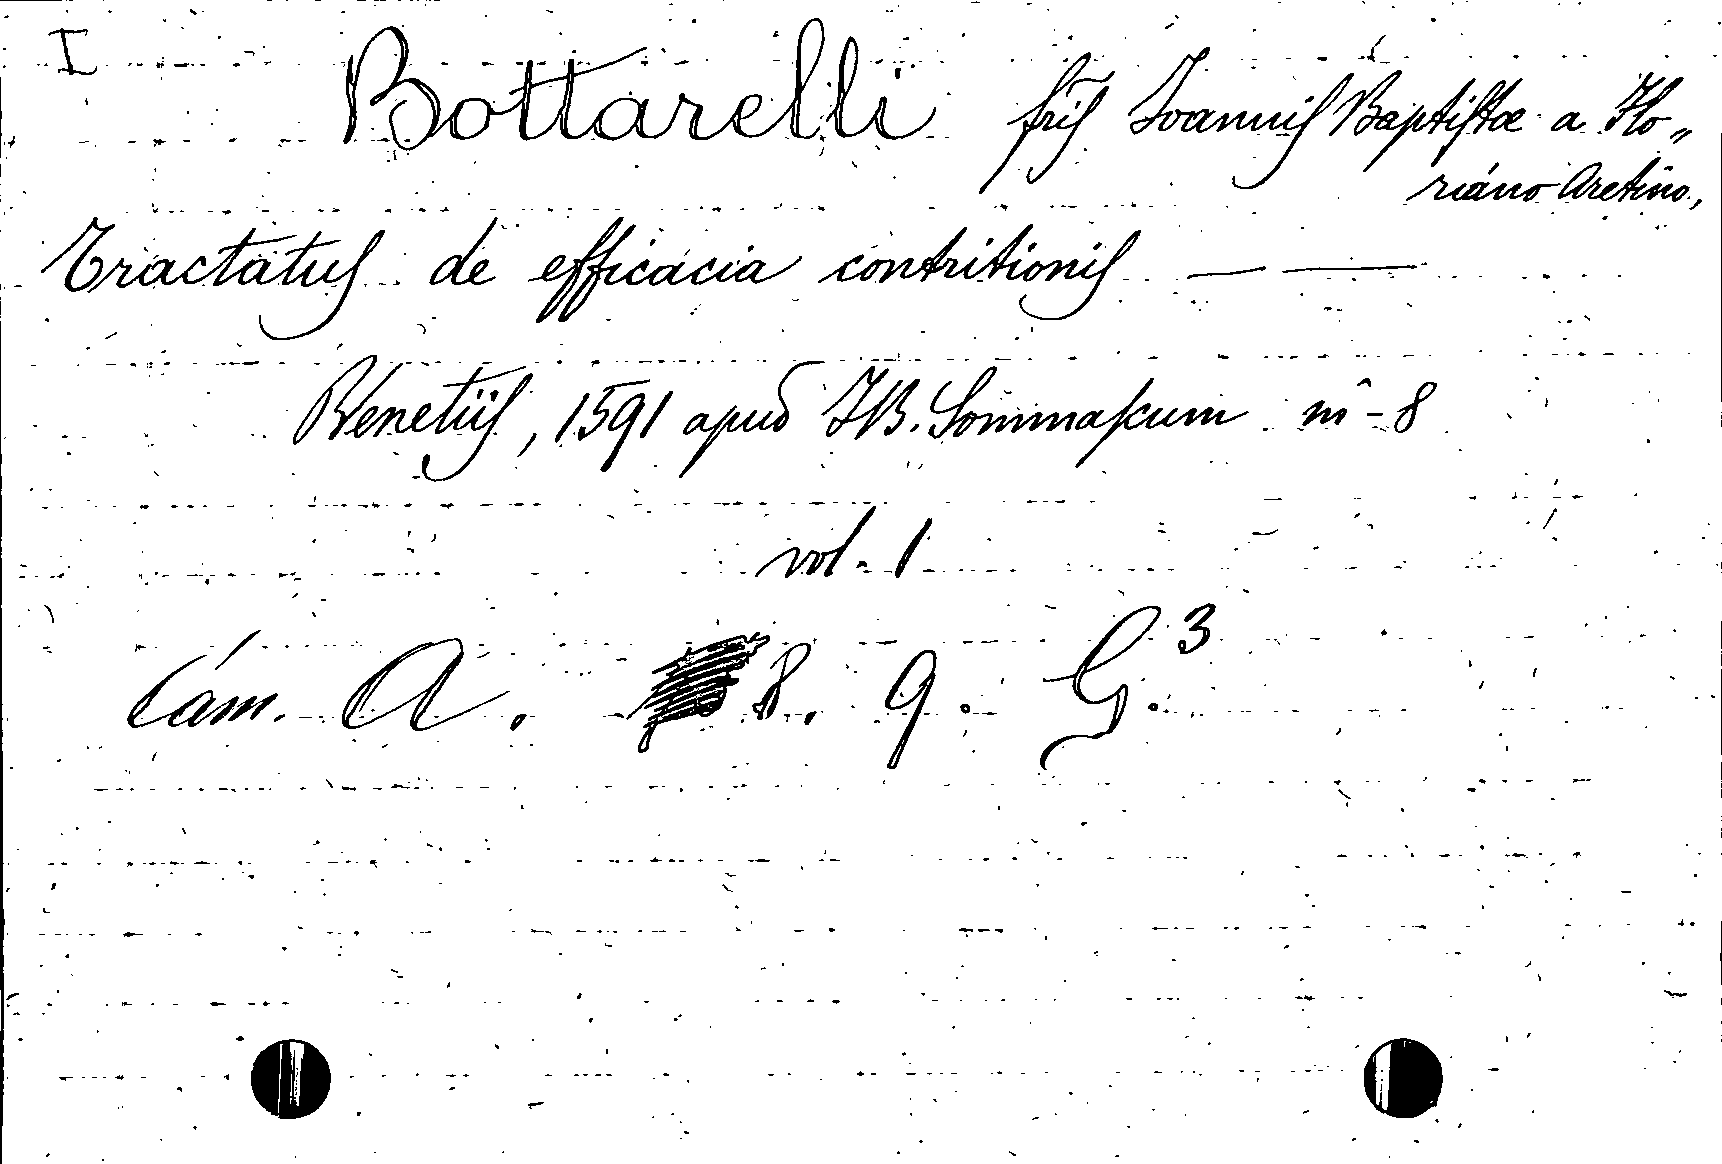 I Bottarelli fris Joannis Baptistæ a Flo„
riáno Aretino,
Tractatus de efficacia contritionis — —
Venetiis, 1591 apud JB. Sommascum in-8
vol. 1
Cam. A. 8. 9. G.3